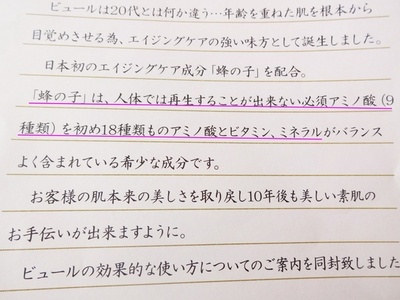 ビュールは20代とは何か違う…年齢を重ねた肌を根本から
目覚めさせる為、エイジングケアの強い味方として誕生しました。
日本初のエイジングケア成分「蜂の子」を配合。
「蜂の子」は、人体では再生することが出来ない必須アミノ酸(9
種類)を初め18種類ものアミノ酸とビタミン、ミネラルがバランス
よく含まれている希少な成分です。
お客様の肌本来の美しさを取り戻し10年後も美しい素肌の
お手伝いが出来ますように。
ビュールの効果的な使い方についてのご案内を同封致しました